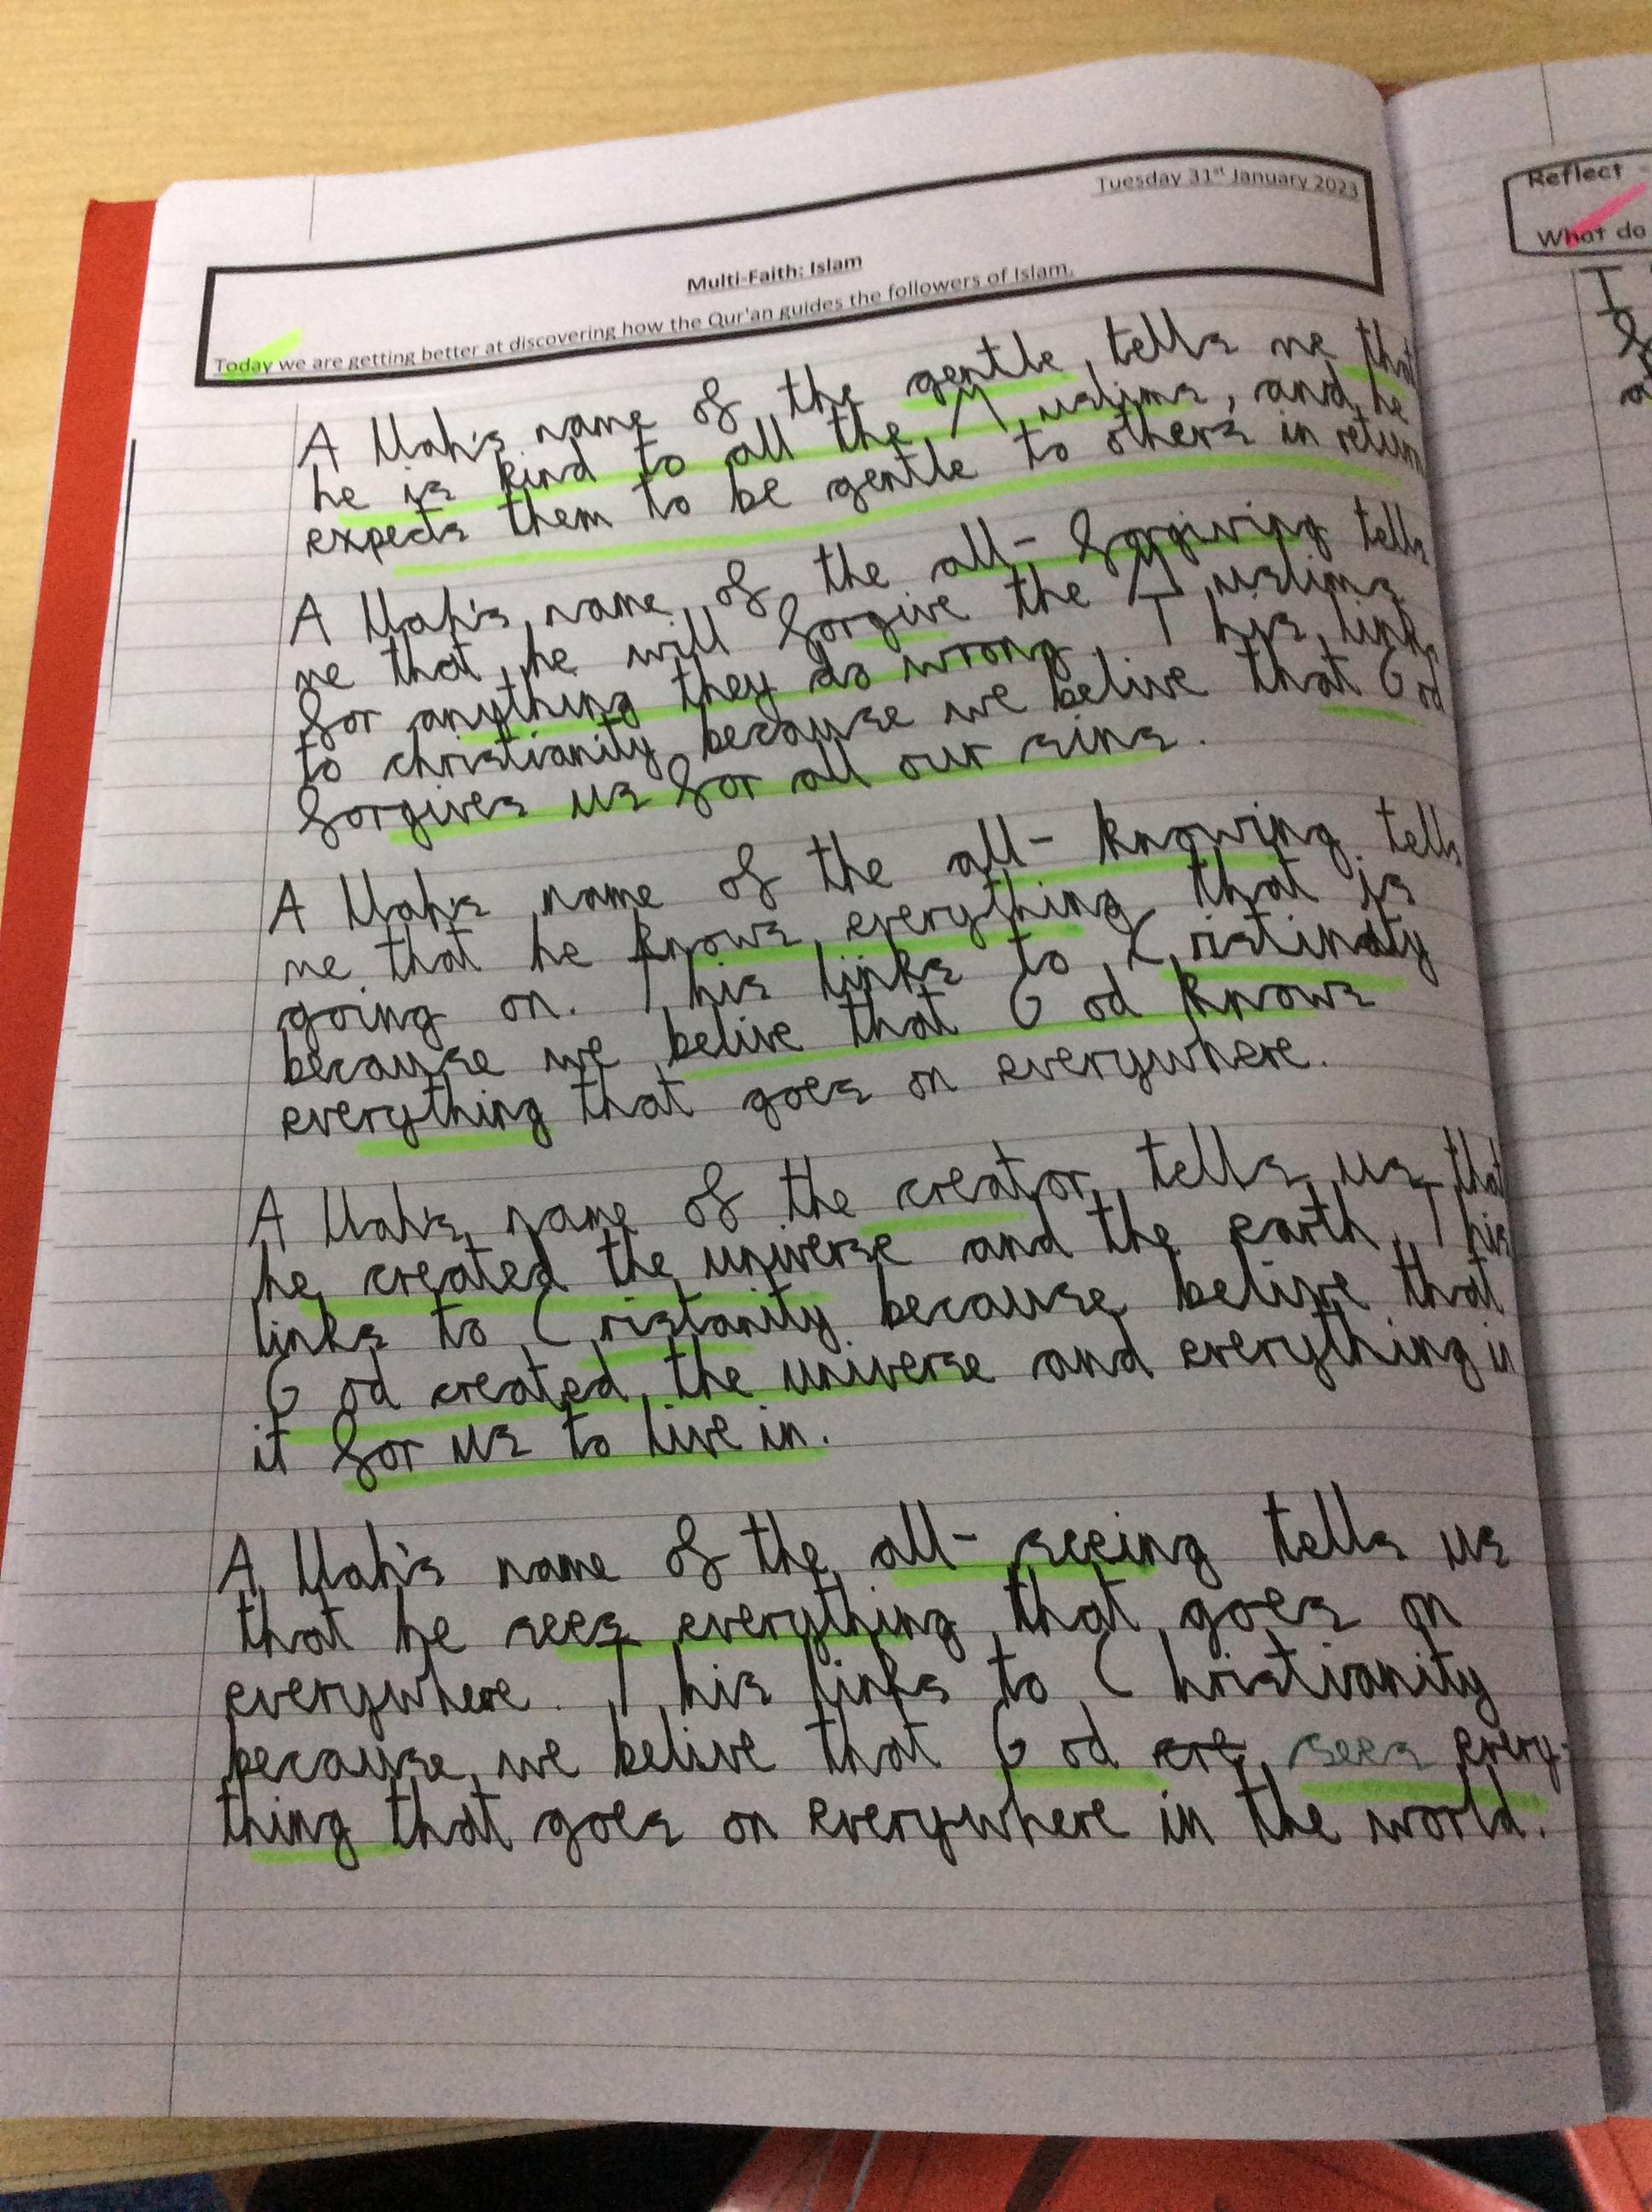 Tuesday 31st January 2023
Multi-Faith: Islam
Today we are getting better at discovering how the Qur'an guides the followers of Islam.
Allah's name of the gentle tells me that
he is kind to all the Muslims, and he
expects them to be gentle to others in return
Allah's name of the all-forgiving tells
me that he will forgive the Muslims
for anything they do wrong. This links
to christianity because we belive that God
forgives us for all our sins.
Allah's name of the all-knowing tells
me that he knows everything that is
going on. This links to Cristinaty
because we belive that God knows
everything that goes on everywhere.
Allah's name of the creator tells us that
he created the universe and the earth. This
links to Cristanity because belive that
God created the universe and everything in
it for us to live in.
Allah's name of the all-seeing tells us
that he sees everything that goes on
everywhere. This links to Christianity
because we belive that God sees every-
thing that goes on everywhere in the world.
Reflect -
What do
I